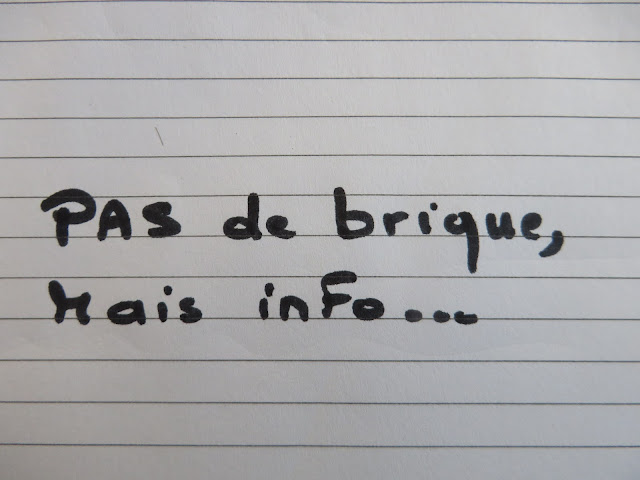 PAS de brique,
Mais info...